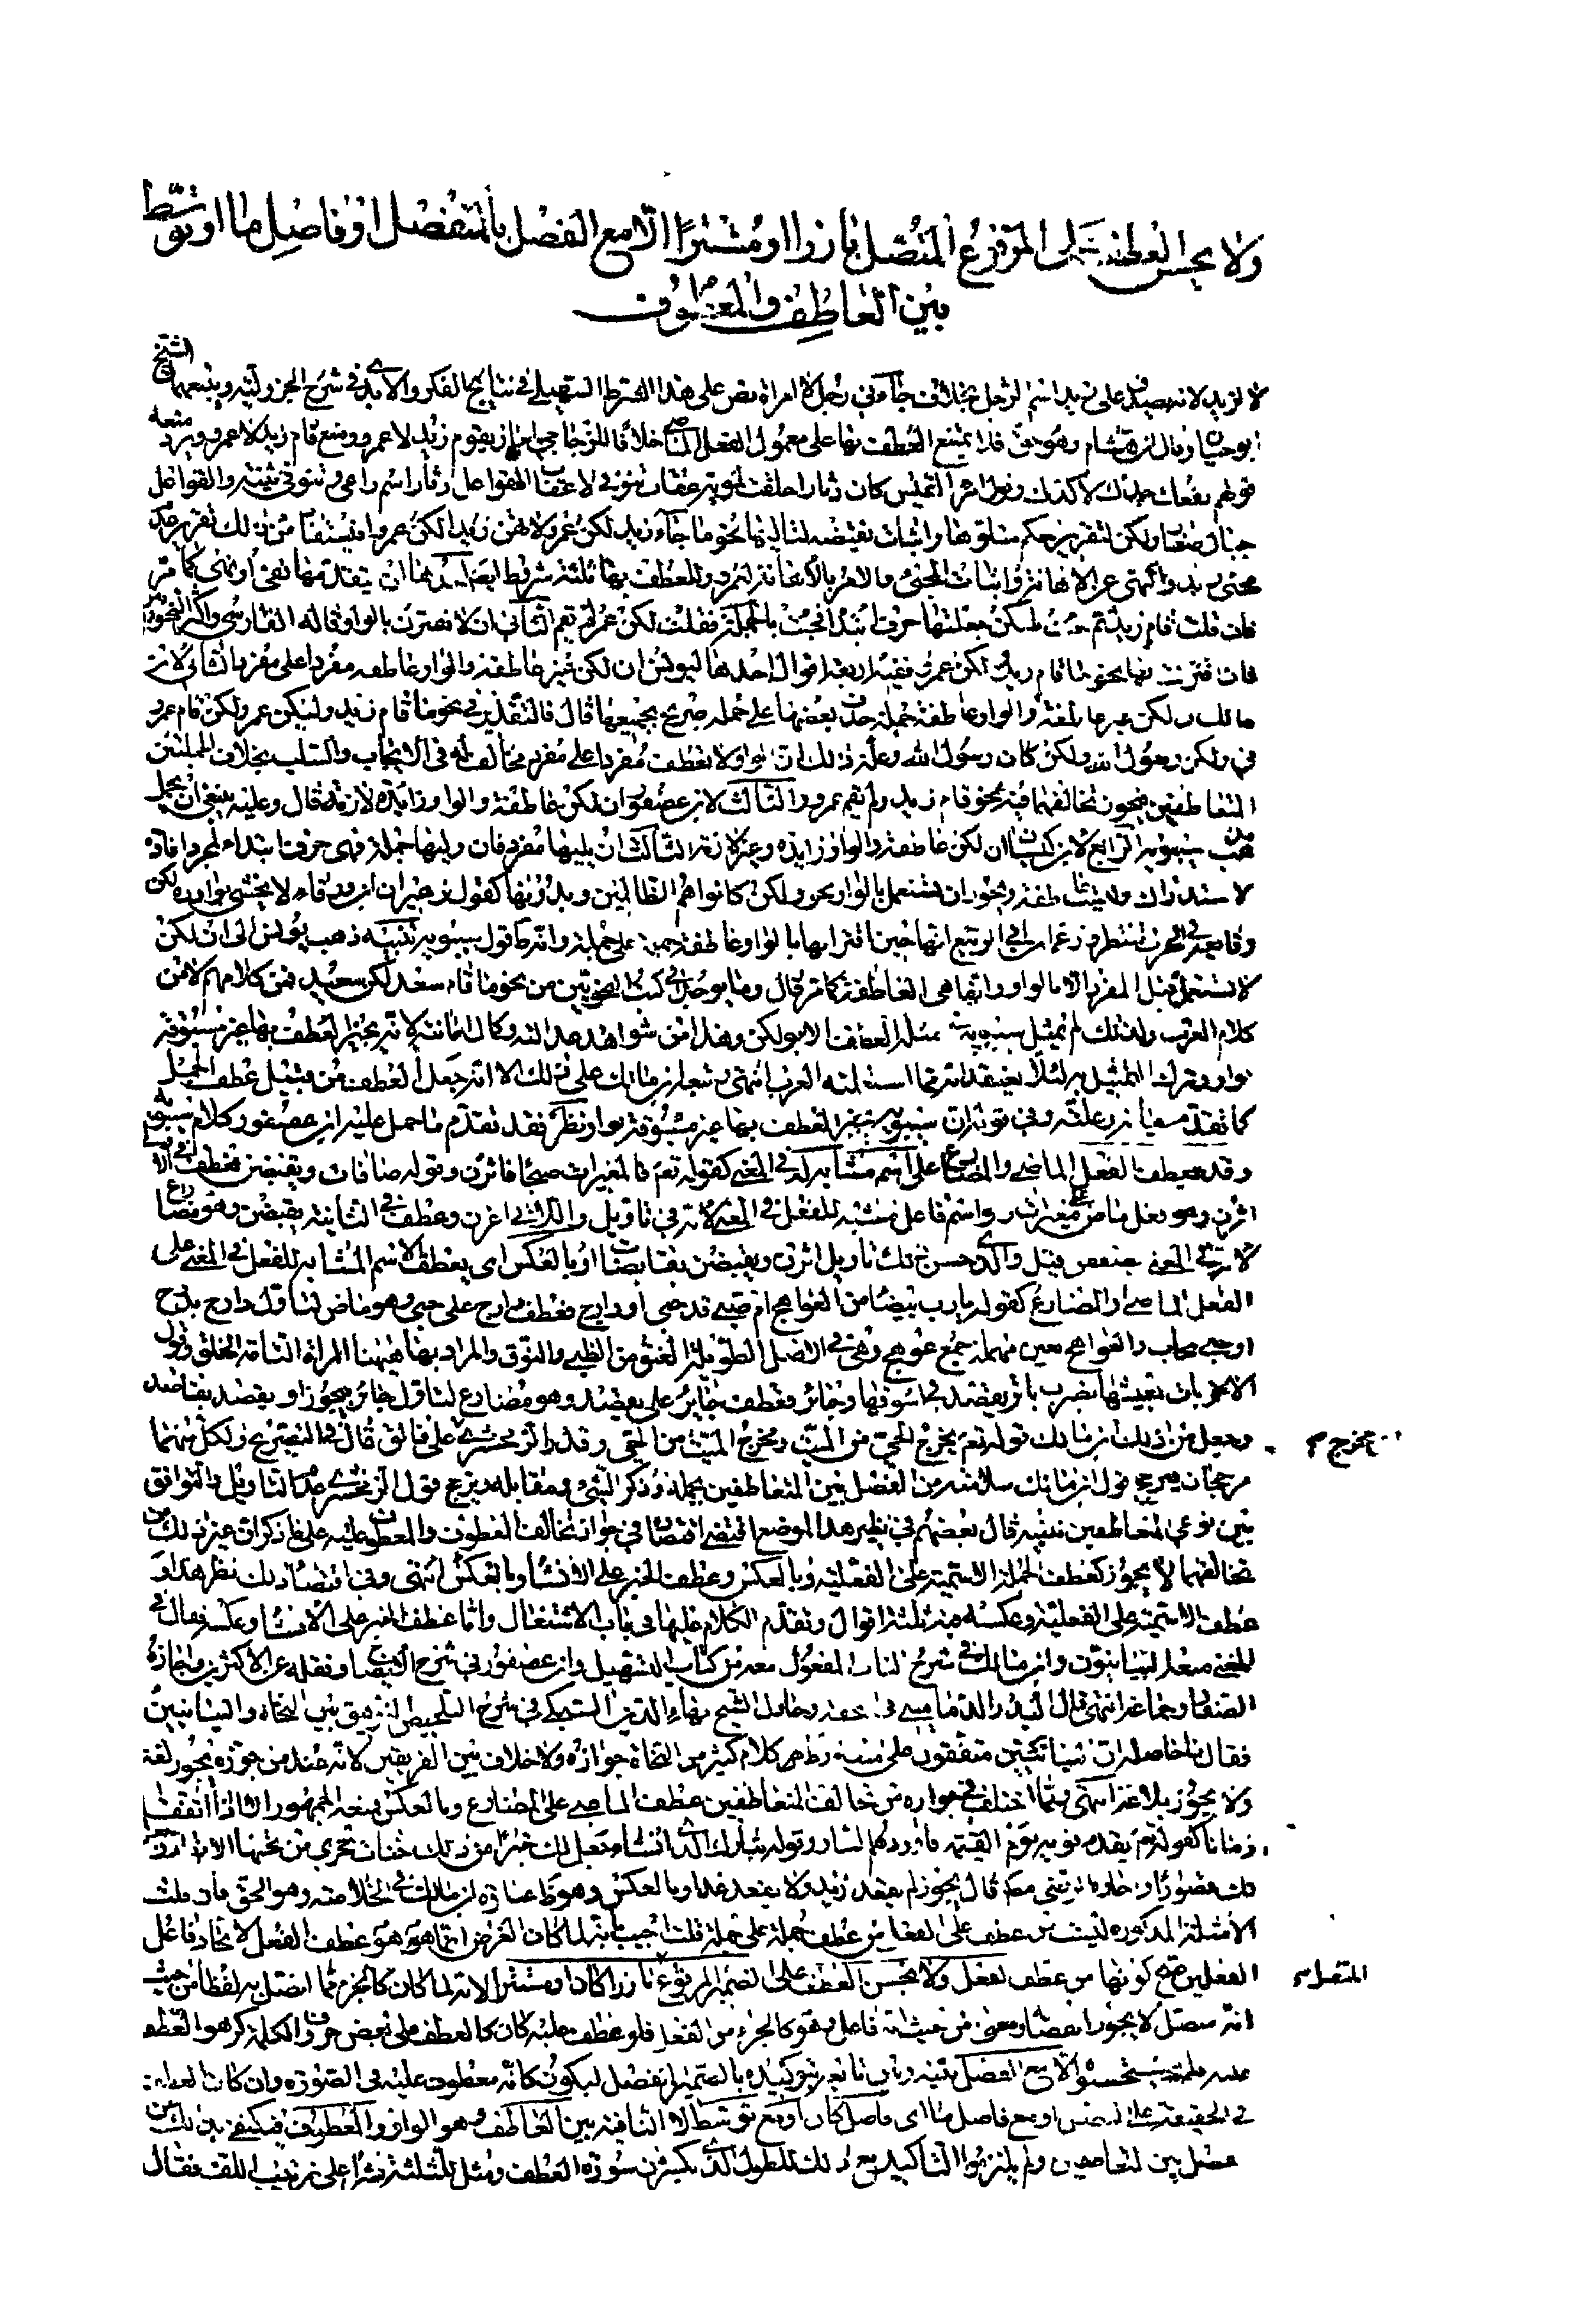 ولا يحسن العطف على المرفوع المتصل بارزا او مستترا الا مع الفصل بالمنفصل او فاصل ما او توسط
بين العاطف والمعطوف
لا لزيد لانه يصدق على زيد اسم الرجل بخلاف جاءني رجل لا امراة نص على هذا الشرط السهيلي في نتايج الفكر والابدي في شرح الجزولية وتبعهما الشيخ
ابو حيان وقال ابن هشام وهو حق فلا يمتنع العطف بها على معمول الفعل الماضي خلافا للزجاجي اجاز يقوم زيد لا عمرو ومنع قام زيد لا عمرو ويرد منعه
قولهم نفعك جدك لا كدك وقول امرئ القيس كان دثارا حلقت بلبونه عقاب تنوفى لا عقاب القواعل دثار اسم راعي وتنوفى ثنية والقواعل
جبال صغار ولكن لتقرير حكم متلوها واثبات نقيضه لتاليها نحو ما جاء زيد لكن عمرو ولا تهن زيدا لكن عمروا فيستفاد من ذلك تقرير عدم
مجيء زيد والنهي عن الاهانة واثبات المجيء والامر بالاهانة لعمرو وللعطف بها ثلثة شروط احدها ان يتقدمها نفي او نهي كما مر
فان قلت قام زيد ثم جئت بلكن جعلتها حرف ابتداء فجئت بالجملة فقلت لكن عمرو لم يقم الثاني ان لا تقترن بالواو قاله الفارسي واكثر النحويين
فان اقترنت بها نحو ما قام زيد ولكن عمرو ففيه اربعة اقوال احدها ليونس ان لكن غير عاطفة والواو عاطفه مفردا على مفرد الثاني لابن
مالك ان لكن غير عاطفة والواو عاطفة لجملة حذف بعضها على جملة صرح بجميعها قال فالتقدير في نحو ما قام زيد ولكن عمرو ولكن قام عمرو
في ولكن رسول الله ولكن كان رسول الله وعلة ذلك ان الواو لا تعطف مفردا على مفرد مخالف له في الايجاب والسلب بخلاف الجملتين
المتعاطفتين فيجوز تخالفهما فيه نحو قام زيد ولم يقم عمرو والثالث لابن عصفور ان لكن عاطفة والواو زايدة لازمة قال وعليه ينبغي ان يحمل
مذهب سيبويه الرابع لابن كيسان ان لكن عاطفة والواو زايدة وغير لازمة الثالث ان يليها مفرد فان وليها جملة فهي حرف ابتداء لمجرد افادة
الاستدراك وليست عاطفة ويجوز ان تستعمل بالواو نحو ولكن كانوا هم الظالمين وبدونها كقول زهير ان ابن ورقاء لا تخشى بوادره لكن
وقايعه في الحرب تنتظر وزعم ابن ابي الربيع انها حين اقترانها بالواو عاطفة جملة على جملة وانه ظاهر قول سيبويه تنبيه ذهب يونس الى ان لكن
لا تستعمل قبل المفرد الا بالواو وانها هي العاطفة كما مر قال وما يوجد في كتب النحويين من نحو ما قام سعد لكن سعيد فمن كلامهم لا من
كلام العرب ولذلك لم يمثل سيبويه في امثلة العطف الا بولكن وهذا من شواهد عدالته وكمال امانته لانه يجيز العطف بها غير مسبوقة
بواو وترك التمثيل به لئلا يعتقد انه مما استعملته العرب انتهى
كما تقدم وفي قوله ان سيبويه يجيز العطف بها غير مسبوقة بواو نظر فقد تقدم ما حمل عليه ابن عصفور كلام سيبويه
وقد يعطف الفعل الماضي والمضارع على اسم مشابه له في المعنى كقوله تعم فالمغيرات صبحا فاثرن وقوله صافات ويقبضن فعطف في الاولى
اثرن وهو فعل ماض على مغيرات وهو اسم فاعل مشبه للفعل في المعنى لانه في تاويل واللاتي اغرن وعطف في الثانية يقبضن وهو مضارع
او بالعكس اي يعطف الاسم المشابه للفعل في المعنى على
الفعل الماضي او المضارع كقوله يا رب بيضاء من العواهج ام صبي قد حبى او دارج فعطف دارج على حبى وهو ماض لتاول دارج بدرج
والعواهج بعين مهملة جمع عوهج وهي في الاصل الطويلة العنق من الظباء والنوق والمراد بها ههنا المراة التامة الخلق وقول
الاخر بات يعشيها بعضب باتر يقصد في اسوقها وجائر فعطف جائر على يقصد وهو مضارع لتاول جائر بيجوز او يقصد بقاصد
وجعل من ذلك ابن مالك قوله تعم يخرج الحي من الميت ومخرج الميت من الحي وقدر الزمخشري عطفه على فالق قال في التصريح ولكل منهما
... مخرج صح
مرجحان فيرجح قول ابن مالك سلامته من الفصل بين المتعاطفين بجملة وذكر الشيء ومقابله ويرجح قول الزمخشري عدم التاويل والتوافق
بين نوعي المتعاطفين تنبيه قال بعضهم في نظير هذا الموضع
تخالفهما لا يجوز كعطف الجملة الاسمية على الفعلية وبالعكس وعطف الخبر على الانشاء وبالعكس انتهى وفي اقتضاء ذلك نظر
عطف الاسمية على الفعلية وعكسه فيه ثلثة اقوال وتقدم الكلام عليها في باب الاشتغال واما عطف الخبر على الانشاء وعكسه فقال في
المغني منعه البيانيون وابن مالك في شرح باب المفعول معه من كتاب التسهيل وابن عصفور في شرح الايضاح ونقله عن الاكثرين واجازه
الصفار وجماعة انتهى قال البدر الدماميني وحاول الشيخ بهاء الدين السبكي في شرح التلخيص التوفيق بين النحاة والبيانيين
فقال ما حاصله ان البيانيين متفقون على منعه وظاهر كلام كثير من النحاة جوازه ولا خلاف بين الفريقين لانه عند من جوزه يجوز لغة
ولا يجوز بلاغة انتهى ومما اختلف في جوازه من تخالف المتعاطفين عطف الماضي على المضارع وبالعكس منعه الجمهور الا اذا اتفقا
زمانا كقوله تعم يقدم قومه يوم القيمة فاوردهم النار وقوله تبارك الذي ان شاء جعل لك خيرا من ذلك جنات تجري من تحتها الانهار ويجعل
لك قصورا
الامثلة المذكورة ليست من عطف الفعل على الفعل بل من عطف جملة على جملة قلت اجيب بانه لما كان الغرض انما هو عطف الفعل لاتحاد فاعل
الفعلين صح كونها من عطف الفعل ولا يحسن العطف على الضمير المرفوع بارزا كان او مستترا لانه لما كان كالجزء مما اتصل به لفظا من حيث
المتصل صح
انه متصل لا يجوز انفصاله ومعنى من حيث انه فاعل وهو كالجزء من الفعل فلو عطف عليه كان كالعطف على بعض حروف الكلمة فكرهوا العطف
عليه فلم يستحسنوه الا مع الفصل بينه وبين تابعه بتوكيده بالضمير المنفصل ليكون كانه معطوف عليه في الصورة وان كان العطف
في الحقيقة على المتصل او مع فاصل ما اي فاصل كان او مع توسط لا النافية بين العاطف وهو الواو والمعطوف فيكتفى بذلك من
فصل بين المتعاطفين ولم يلتزموا التاكيد مع ذلك للطول الذي يكسر من سورة العطف ومثل للثلثة نشرا على ترتيب اللف فقال